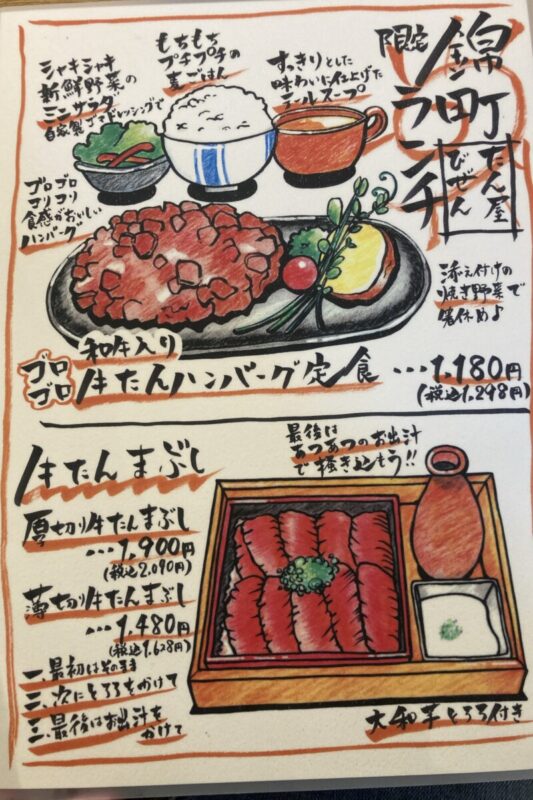 錦町
限定
ランチ
たん屋
びぜん
すっきりとした
味わいに仕上げた
テールスープ
もちもち
プチプチの
麦ごはん
シャキシャキ
新鮮野菜の
ミニサラダ
自家製ゴマドレッシングで
ゴロゴロ
コリコリ
食感がおいしい
ハンバーグ
添え付けの
焼き野菜で
箸休めよ
和牛入り
ゴロ
ゴロ
牛たんハンバーグ定食
・・・1,180円
(税込1,298円)
牛たんまぶし
最後は
あつあつのお出汁
で掻き込もう!!
厚切り牛たんまぶし
・・・1,900円
(税込2,090円)
薄切り牛たんまぶし
・・・1,480円
(税込1,628円)
一、最初はそのまま
二、次にとろろをかけて
三、最後はお出汁を
かけて
大和芋とろろ付き